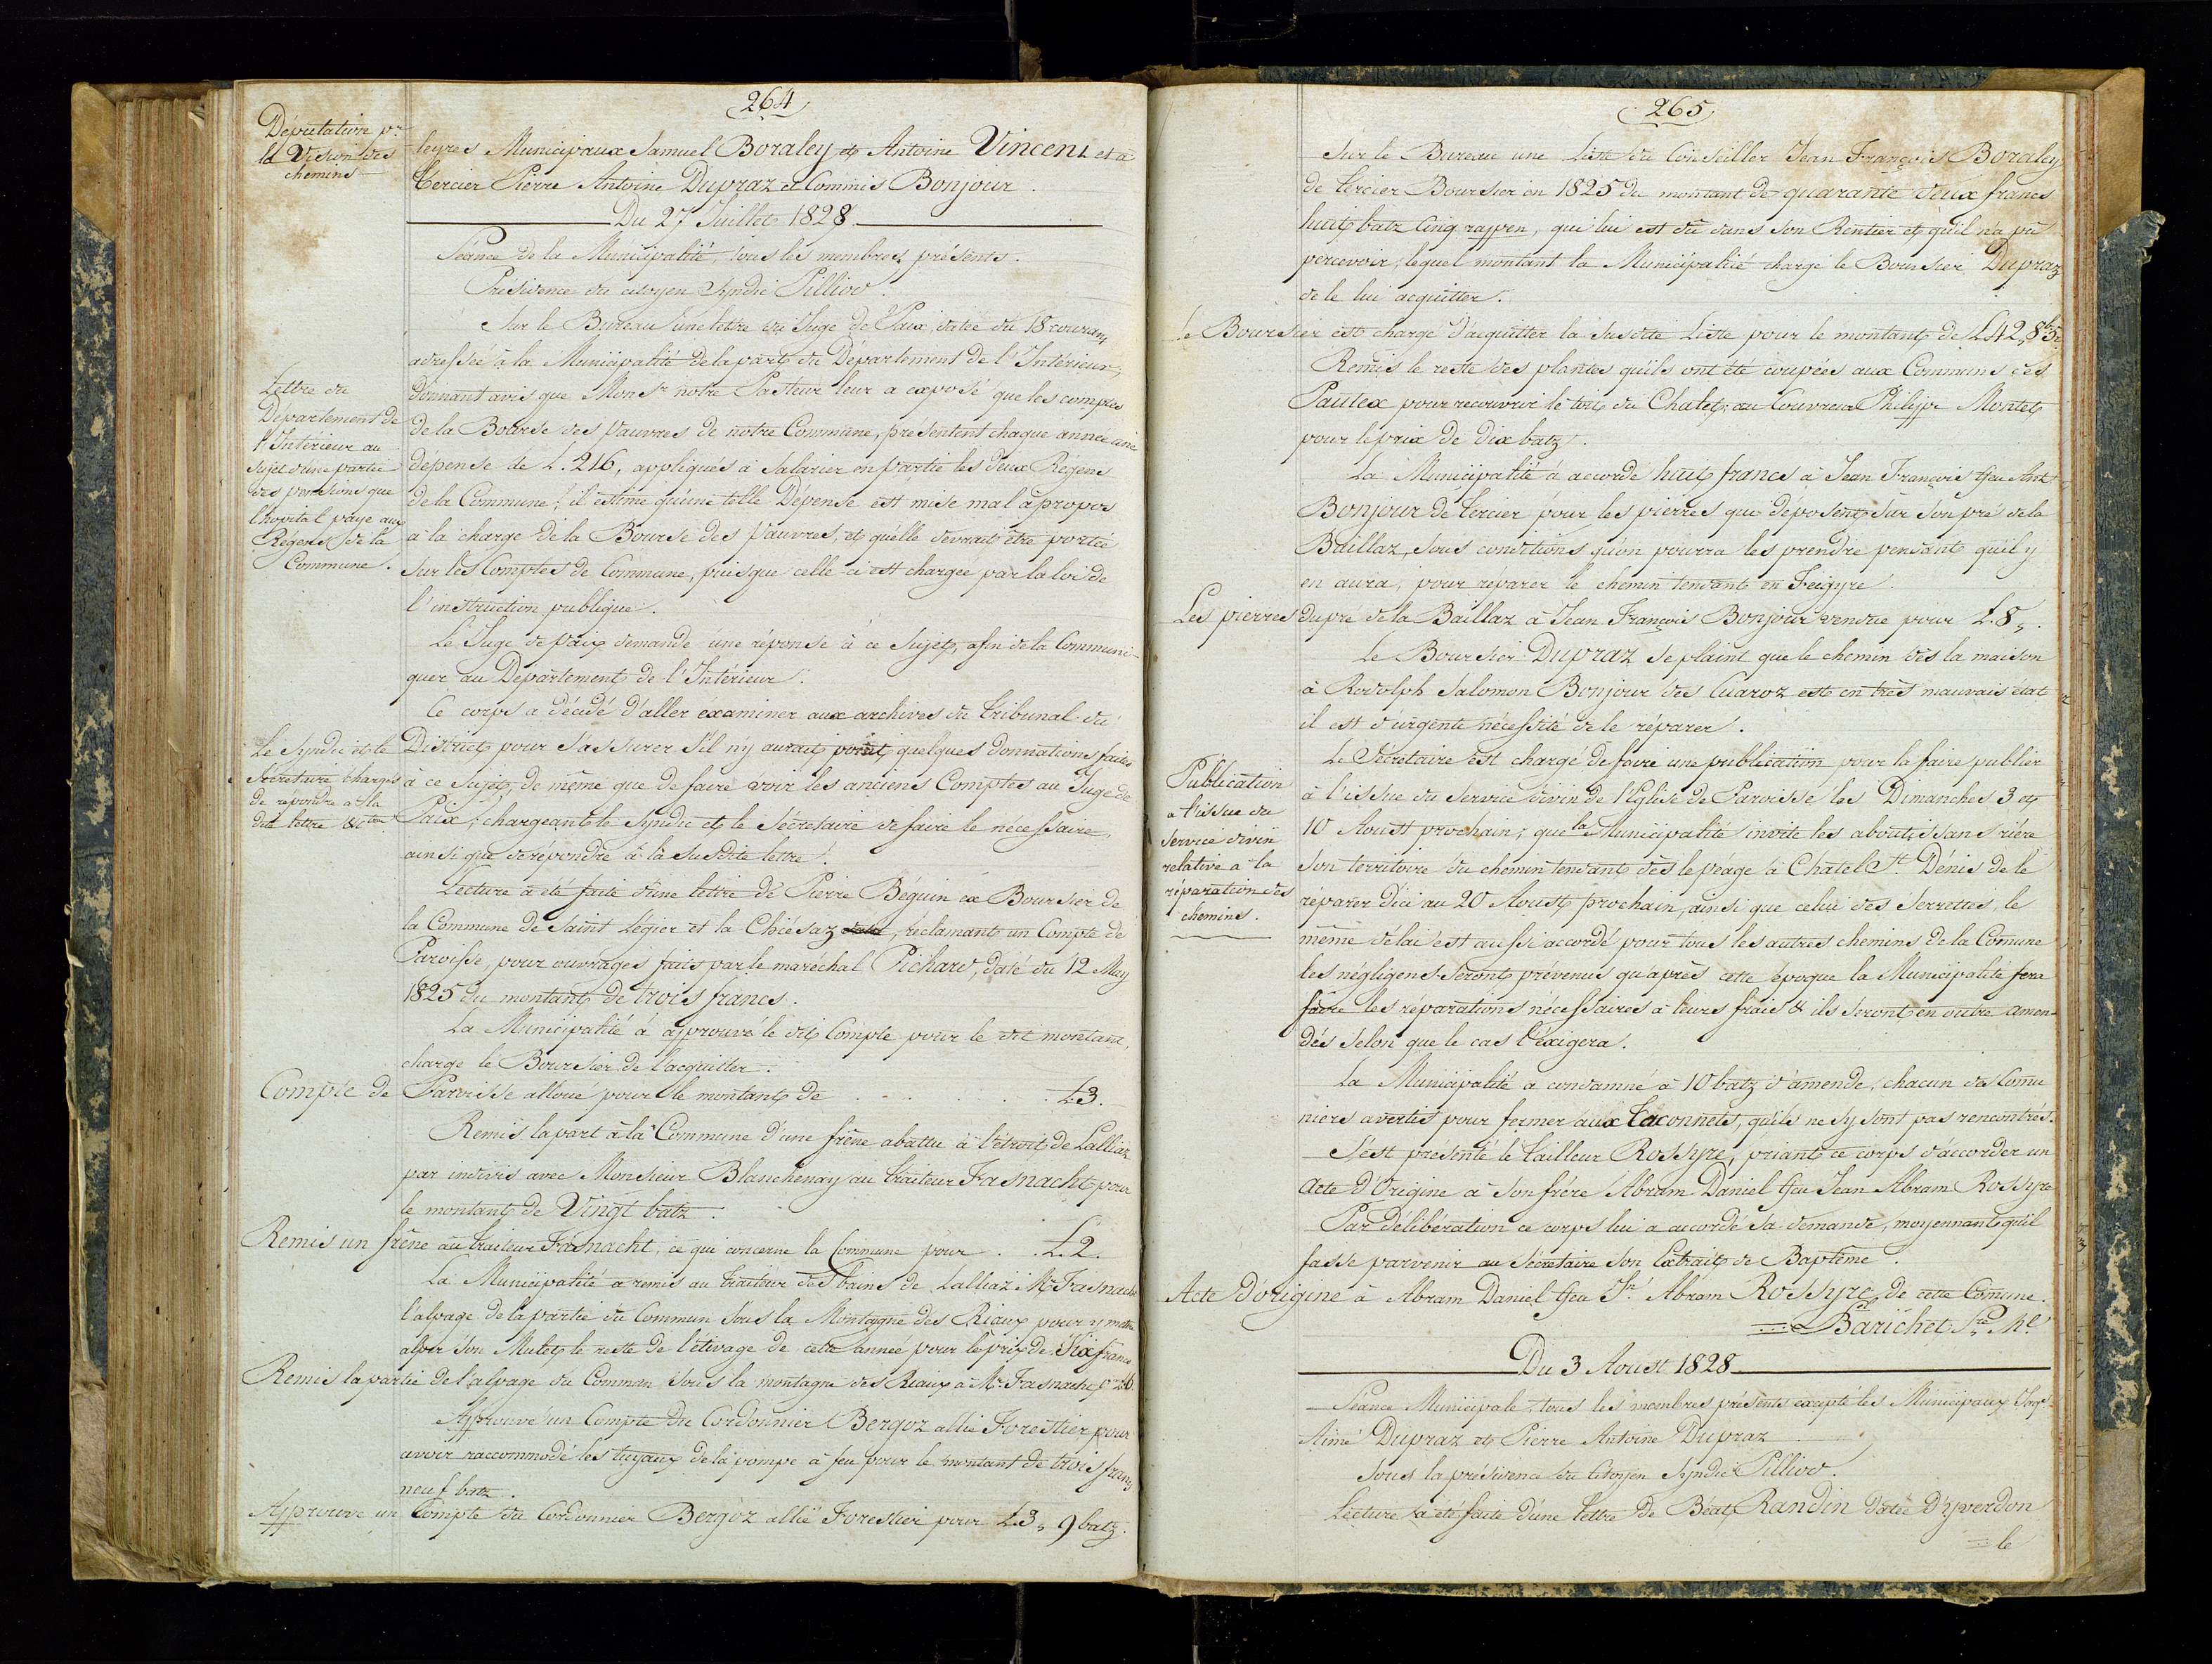 264
Députation pr
la Vision des
chemins
leyres Municipaux Samuel Boraley et Antoine Vincent et à
Tercier Pierre Antoine Dupraz et Commis Bonjour.
Du 27 Juillet 1828.
Séance de la Municipalité, tous les membres présents.
Présidence du citoyen Syndic Pilliod.
Sur le Bureau une lettre du Juge de Paix, datée du 18 courant,
adressée à la Municipalité de la part du Département de l'Intérieur,
Lettre du
Département de
l'Intérieur au
sujet d'une partie
des pensions que
l'hopital paye aux
Régens de la
Commune.
donnant avis que Monsr notre Pasteur leur a exposé que les comptes
de la Bourse des Pauvres de notre Commune, presentent chaque année une
dépense de L. 216, appliqués à salarier en partie les deux Régens
de la Commune; il estime qu'une telle Dépense est mise mal à propos
à la charge de la Bourse des Pauvres, et qu'elle devrait être portée
sur les Comptes de Commune, puisque celle-ci est chargée par la loi de
l'instruction publique.
Le Juge de paix demande une réponse à ce sujet, afin de la Communi-
quer au Département de l'Intérieur.
Ce corps a décidé d'aller examiner aux archives du Tribunal du
Le Syndic et le
Secretaire chargés
de répondre à la
dite lettre &cta
District pour s'assurer s'il n'y aurait point quelques donnations faites
à ce sujet, de même que de faire voir les anciens Comptes au Juge de
Paix; chargeant le Syndic et le Sécretaire de faire le nécessaire,
ainsi que de répondre à la susdite lettre.
Lecture a été faite d'une lettre de Pierre Béguin ex Boursier de
la Commune de Saint Légier et la Chiésaz, réclamant un Compte de
Paroisse, pour ouvrages faits par le maréchal Pichard, daté du 12 May
1825 du montant de trois francs.
La Municipalité à approuvé le dit Compte pour le dit montant,
charge le Boursier de l'acquitter.
Compte de Paroisse alloué pour le montant de . . . . . . L3.
Remis la part à la Commune d'une frêne abattu à l'étroit de Lalliaz
par indivis avec Monsieur Blanchenay au traiteur Fasnacht pour
le montant de Vingt batz.
Remis un frêne au traiteur Fasnacht, ce qui concerne la Commune pour . . L.2.
La Municipalité a remis au traiteur des bains de Lalliaz Mr Fasnacht
l'alpage de la partie du Commun sous la Montagne des Riaux pour y mettre
alper son Mulet le reste de l'étivage de cette année pour le prix de Six francs.
Remis la partie de l'alpage du Commun sous la montagne des Riaux à Mr. Fasnacht pr L6.
Approuvé un Compte du Cordonnier Bergoz allié Forestier pour
avoir raccommodé les tuyaux de la pompe à feu pour le montant de trois francs
neuf batz.
Approuvé un Compte du Cordonnier Bergoz allié Forestier pour L.3,, 9 batz.
265
Sur le Bureau une Liste du Conseiller Jean François Boraley
de Tercier Boursier en 1825 du montant de quarante deux francs
huit batz cinq rappen, qui lui est dû dans son Rentier et qu'il n'a pû
percevoir; lequel montant la Municipalité charge le Boursier Dupraz
de le lui acquitter.
Le Boursier est chargé d'acquitter la susdite Liste pour le montant de L42,, 8b 5r
Remis le reste des plantes qu'ils ont été coupées aux Communs des
Pautex pour recouvrir le toit du Chalet, au Couvreur Philippe Montet,
pour le prix de dix batz.
La Municipalité a accordé huit francs à Jean François ffeu Ant:
Bonjour de Tercier pour les pierres que déposent sur son pré de la
Baillaz, sous conditions qu'on pourra les prendre pendant qu'il y
en aura, pour réparer le chemin tendant en Feigyre.
Les pierres du pré de la Baillaz à Jean François Bonjour vendue pour L.8,,.
Le Boursier Dupraz se plaint que le chemin dès la maison
à Rodolph Salomon Bonjour des Cuaroz est en très mauvais état
il est d'urgente nécessité de le réparer.
Publication
a l'issue du
service divin
relative à la
réparation des
chemins.
Le Sécretaire est chargé de faire une publication pour la faire publier
à l'issue du service divin de l'Eglise de Paroisse les Dimanches 3 et
10 Aoust prochain; que la Municipalité invite les aboutissans rière
son territoire du chemin tendant dès le péage à Chatel St. Dénis de le
réparer d'ici au 20 Aoust prochain, ainsi que celui des Serrettes, le
même délai est aussi accordé pour tous les autres chemins de la Comune
les négligens seront prévenus qu'après cette époque la Municipalité fera
faire les réparations nécessaires à leurs frais & ils seront en outre amen-
dés selon que le cas l'éxigera.
La Municipalité a condamné à 10 batz d'amende, chacun des Comu
niers avertis pour fermer aux Taconnets, qu'ils ne s'y sont pas rencontrés.
S'est présenté le tailleur Rossyre, priant ce corps d'accorder un
Acte d'Origine à son frère Abram Daniel ffeu Jean Abram Rossyre
Par délibération ce corps lui a accordé sa demande, moyennant qu'il
fasse parvenir au Sécretaire son Extrait de Baptême.
Acte d'origine à Abram Daniel ffeu Jn Abram Rossyre de cette Comune.
Barichet Sre Ml
Du 3 Aoust 1828
Séance Municipale tous les membres présents excepté les Municipaux
Aimé Dupraz et Pierre Antoine Dupraz
sous la présidence du Citoyen Syndic Pilliod.
Lecture a été faite d'une lettre de Béat Randin datée D'yverdon
le